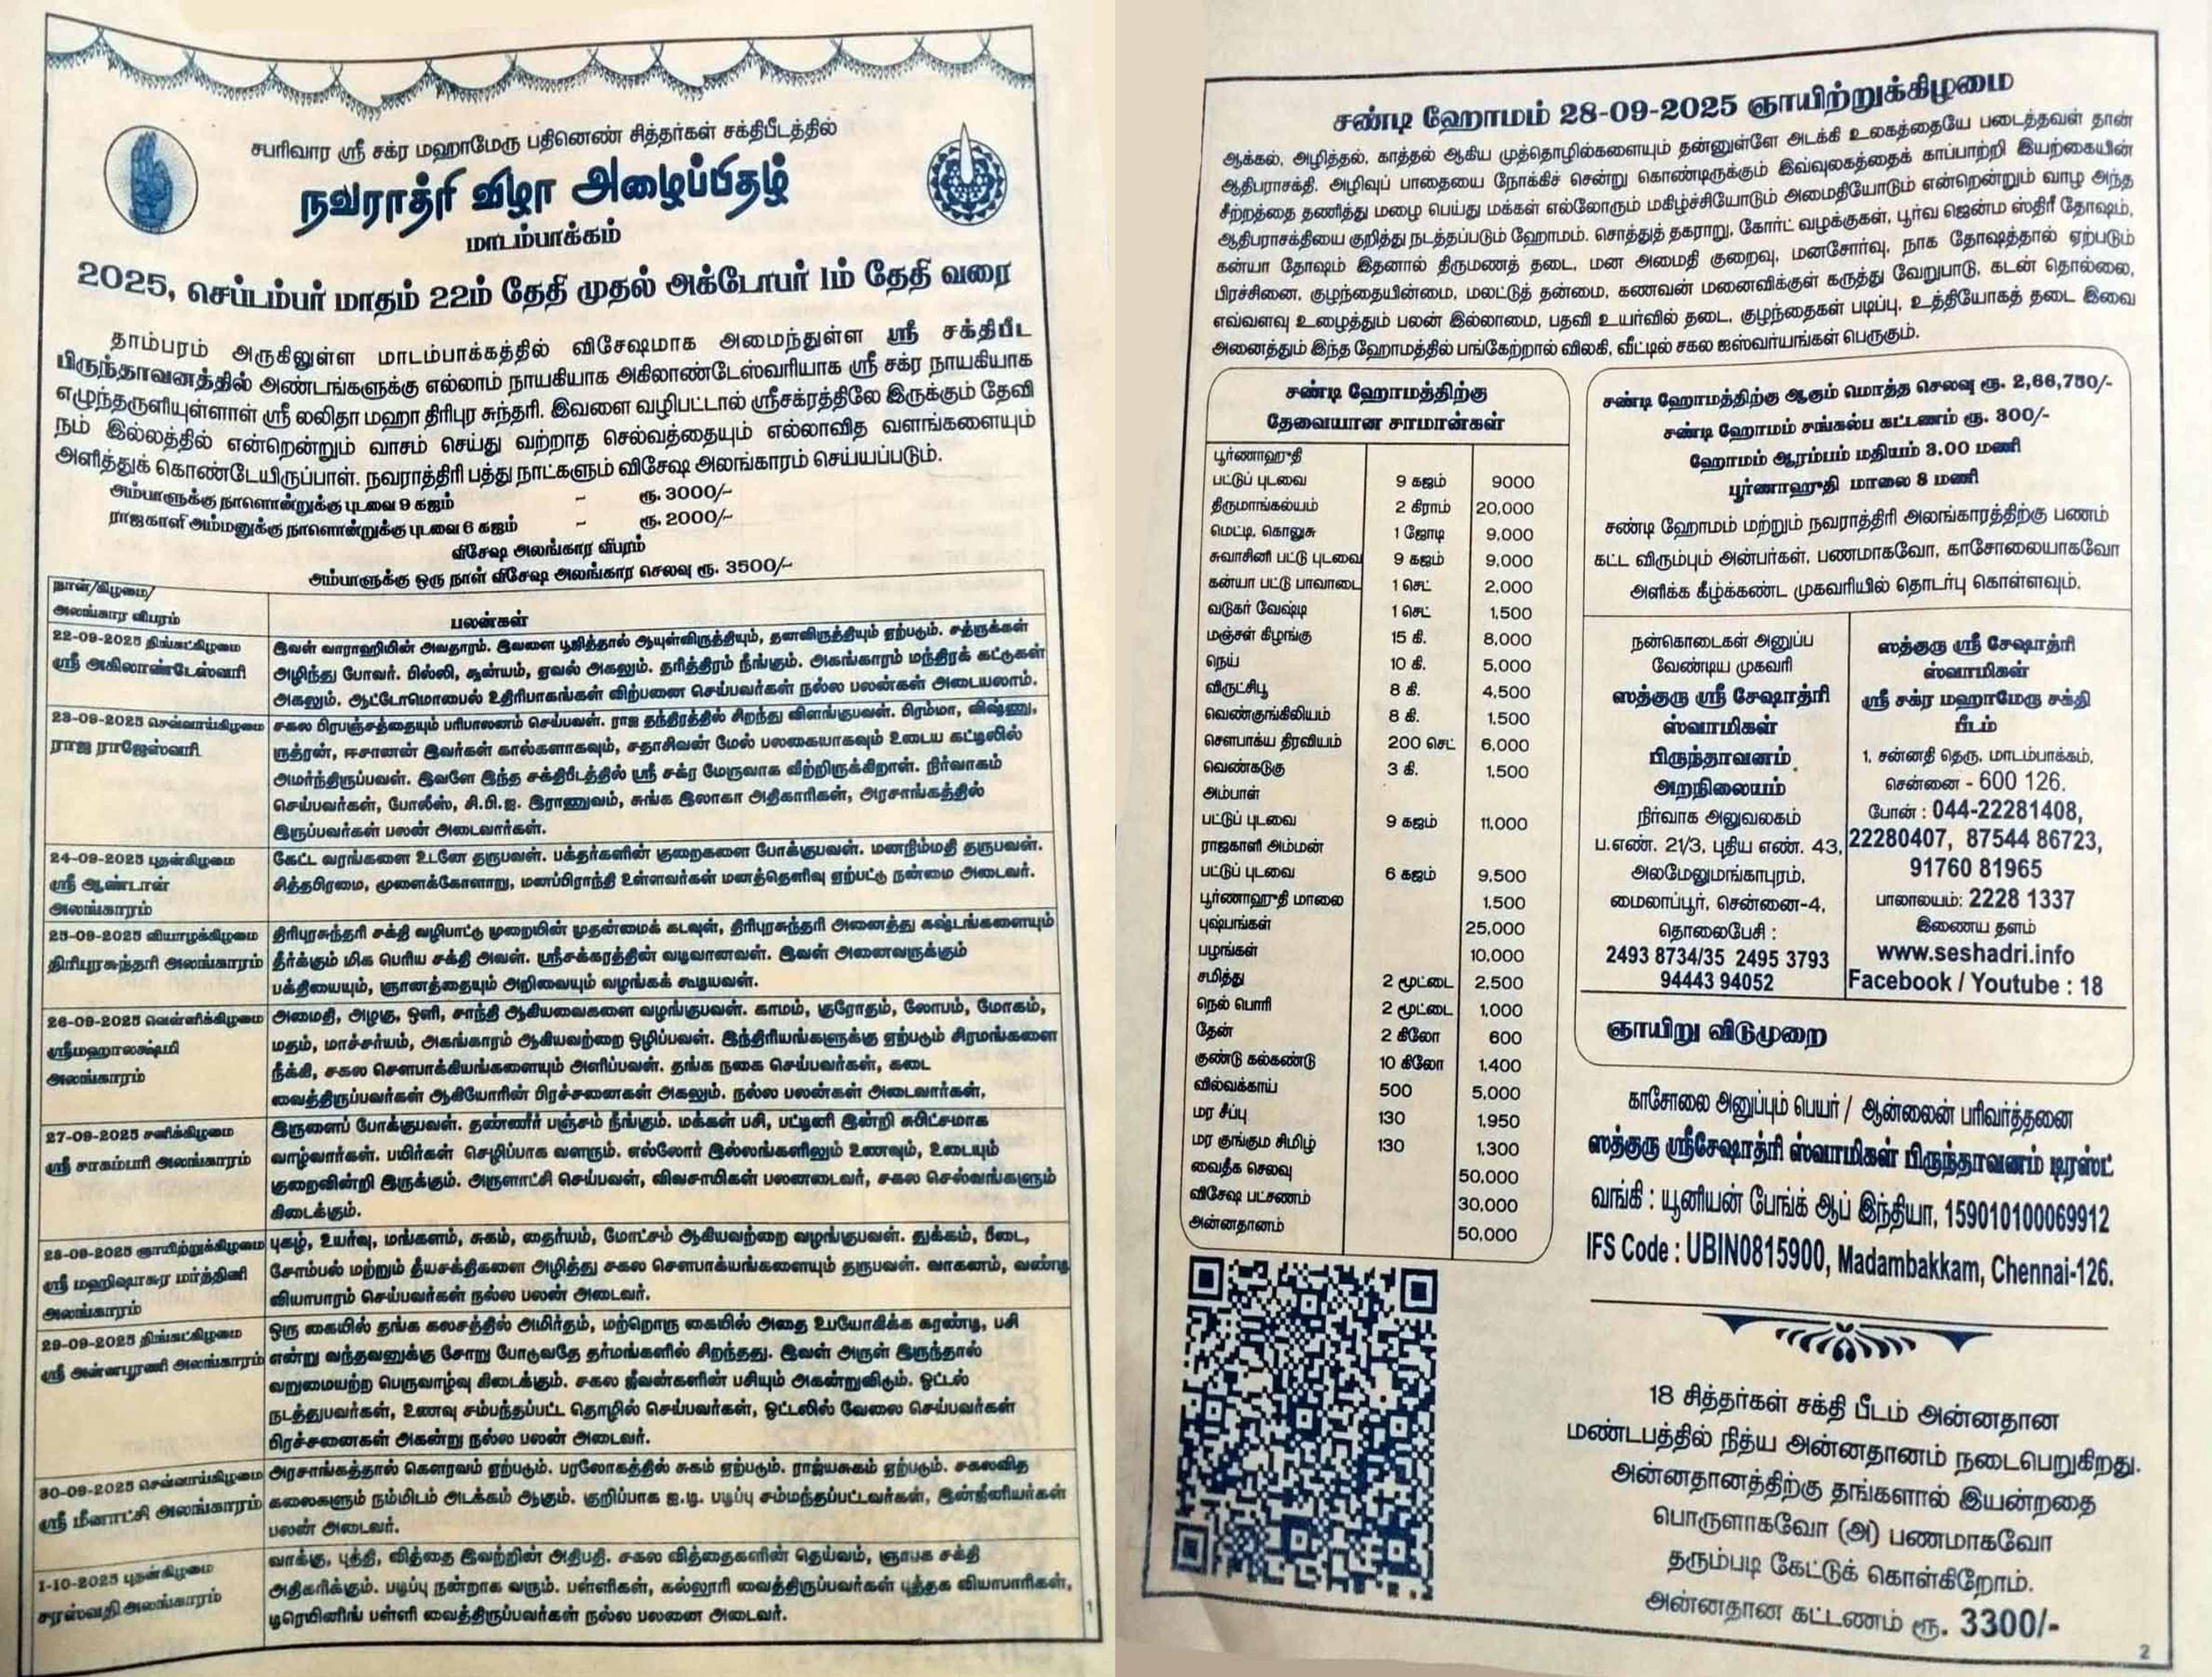 சபரிவார ஸ்ரீ சக்ர மஹாமேரு பதினெண் சித்தர்கள் சக்திபீடத்தில்
நவராத்ரி விழா அழைப்பிதழ்
மாடம்பாக்கம்
2025, செப்டம்பர் மாதம் 22ம் தேதி முதல் அக்டோபர் 1ம் தேதி வரை
தாம்பரம் அருகிலுள்ள மாடம்பாக்கத்தில் விசேஷமாக அமைந்துள்ள ஸ்ரீ சக்திபீட
பிருந்தாவனத்தில் அண்டங்களுக்கு எல்லாம் நாயகியாக அகிலாண்டேஸ்வரியாக ஸ்ரீ சக்ர நாயகியாக
எழுந்தருளியுள்ளாள் ஸ்ரீ லலிதா மஹா திரிபுர சுந்தரி. இவளை வழிபட்டால் ஸ்ரீசக்ரத்திலே இருக்கும் தேவி
நம் இல்லத்தில் என்றென்றும் வாசம் செய்து வற்றாத செல்வத்தையும் எல்லாவித வளங்களையும்
அளித்துக் கொண்டேயிருப்பாள். நவராத்திரி பத்து நாட்களும் விசேஷ அலங்காரம் செய்யப்படும்.
அம்பாளுக்கு நாளொன்றுக்கு புடவை 9 கஜம் - ரூ. 3000/-
ராஜகாளி அம்மனுக்கு நாளொன்றுக்கு புடவை 6 கஜம் - ரூ. 2000/-
விசேஷ அலங்கார விபரம்
அம்பாளுக்கு ஒரு நாள் விசேஷ அலங்கார செலவு ரூ. 3500/-
நாள்/கிழமை/
அலங்கார விபரம்
பலன்கள்
22-09-2025 திங்கட்கிழமை
ஸ்ரீ அகிலாண்டேஸ்வரி
இவள் வாராஹியின் அவதாரம். இவளை பூஜித்தால் ஆயுள்விருத்தியும், தனவிருத்தியும் ஏற்படும். சத்ருக்கள்
அழிந்து போவர். பில்லி, சூன்யம், ஏவல் அகலும். தரித்திரம் நீங்கும். அகங்காரம் மந்திரக் கட்டுகள்
அகலும். ஆட்டோமொபைல் உதிரிபாகங்கள் விற்பனை செய்பவர்கள் நல்ல பலன்கள் அடையலாம்.
23-09-2025 செவ்வாய்கிழமை
ராஜ ராஜேஸ்வரி
சகல பிரபஞ்சத்தையும் பரிபாலனம் செய்பவள். ராஜ தந்திரத்தில் சிறந்து விளங்குபவள். பிரம்மா, விஷ்ணு,
ருத்ரன், ஈசானன் இவர்கள் கால்களாகவும், சதாசிவன் மேல் பலகையாகவும் உடைய கட்டிலில்
அமர்ந்திருப்பவள். இவளே இந்த சக்திபீடத்தில் ஸ்ரீ சக்ர மேருவாக வீற்றிருக்கிறாள். நிர்வாகம்
செய்பவர்கள், போலீஸ், சி.பி.ஐ. இராணுவம், சுங்க இலாகா அதிகாரிகள், அரசாங்கத்தில்
இருப்பவர்கள் பலன் அடைவார்கள்.
24-09-2025 புதன்கிழமை
ஸ்ரீ ஆண்டாள்
அலங்காரம்
கேட்ட வரங்களை உடனே தருபவள். பக்தர்களின் குறைகளை போக்குபவள். மனநிம்மதி தருபவள்.
சித்தபிரமை, மூளைக்கோளாறு, மனப்பிராந்தி உள்ளவர்கள் மனத்தெளிவு ஏற்பட்டு நன்மை அடைவர்.
25-09-2025 வியாழக்கிழமை
திரிபுரசுந்தரி அலங்காரம்
திரிபுரசுந்தரி சக்தி வழிபாட்டு முறையின் முதன்மைக் கடவுள், திரிபுரசுந்தரி அனைத்து கஷ்டங்களையும்
தீர்க்கும் மிக பெரிய சக்தி அவள். ஸ்ரீசக்கரத்தின் வடிவானவள். இவள் அனைவருக்கும்
பக்தியையும், ஞானத்தையும் அறிவையும் வழங்கக் கூடியவள்.
26-09-2025 வெள்ளிக்கிழமை
ஸ்ரீமஹாலக்ஷ்மி
அலங்காரம்
அமைதி, அழகு, ஒளி, சாந்தி ஆகியவைகளை வழங்குபவள். காமம், குரோதம், லோபம், மோகம்,
மதம், மாச்சர்யம், அகங்காரம் ஆகியவற்றை ஒழிப்பவள். இந்திரியங்களுக்கு ஏற்படும் சிரமங்களை
நீக்கி, சகல சௌபாக்கியங்களையும் அளிப்பவள். தங்க நகை செய்பவர்கள், கடை
வைத்திருப்பவர்கள் ஆகியோரின் பிரச்சனைகள் அகலும். நல்ல பலன்கள் அடைவார்கள்,
27-09-2025 சனிக்கிழமை
ஸ்ரீ சாகம்பரி அலங்காரம்
இருளைப் போக்குபவள். தண்ணீர் பஞ்சம் நீங்கும். மக்கள் பசி, பட்டினி இன்றி சுபிட்சமாக
வாழ்வார்கள். பயிர்கள் செழிப்பாக வளரும். எல்லோர் இல்லங்களிலும் உணவும், உடையும்
குறைவின்றி இருக்கும். அருளாட்சி செய்பவள், விவசாயிகள் பலனடைவர், சகல செல்வங்களும்
கிடைக்கும்.
28-09-2025 ஞாயிற்றுக்கிழமை
ஸ்ரீ மஹிஷாசுர மர்த்தினி
அலங்காரம்
புகழ், உயர்வு, மங்களம், சுகம், தைர்யம், மோட்சம் ஆகியவற்றை வழங்குபவள். துக்கம், பீடை,
சோம்பல் மற்றும் தீயசக்திகளை அழித்து சகல சௌபாக்யங்களையும் தருபவள். வாகனம், வண்டி
வியாபாரம் செய்பவர்கள் நல்ல பலன் அடைவர்.
29-09-2025 திங்கட்கிழமை
ஸ்ரீ அன்னபூரணி அலங்காரம்
ஒரு கையில் தங்க கலசத்தில் அமிர்தம், மற்றொரு கையில் அதை உபயோகிக்க கரண்டி, பசி
என்று வந்தவனுக்கு சோறு போடுவதே தர்மங்களில் சிறந்தது. இவள் அருள் இருந்தால்
வறுமையற்ற பெருவாழ்வு கிடைக்கும். சகல ஜீவன்களின் பசியும் அகன்றுவிடும். ஓட்டல்
நடத்துபவர்கள், உணவு சம்பந்தப்பட்ட தொழில் செய்பவர்கள், ஓட்டலில் வேலை செய்பவர்கள்
பிரச்சனைகள் அகன்று நல்ல பலன் அடைவர்.
30-09-2025 செவ்வாய்கிழமை
ஸ்ரீ மீனாட்சி அலங்காரம்
அரசாங்கத்தால் கௌரவம் ஏற்படும். பரலோகத்தில் சுகம் ஏற்படும். ராஜ்யசுகம் ஏற்படும். சகலவித
கலைகளும் நம்மிடம் அடக்கம் ஆகும். குறிப்பாக ஐ.டி. படிப்பு சம்மந்தப்பட்டவர்கள், இன்ஜினியர்கள்
பலன் அடைவர்.
1-10-2025 புதன்கிழமை
சரஸ்வதி அலங்காரம்
வாக்கு, புத்தி, வித்தை இவற்றின் அதிபதி. சகல வித்தைகளின் தெய்வம், ஞாபக சக்தி
அதிகரிக்கும். படிப்பு நன்றாக வரும். பள்ளிகள், கல்லூரி வைத்திருப்பவர்கள் புத்தக வியாபாரிகள்,
டிரெயினிங் பள்ளி வைத்திருப்பவர்கள் நல்ல பலனை அடைவர்.
1
சண்டி ஹோமம் 28-09-2025 ஞாயிற்றுக்கிழமை
ஆக்கல், அழித்தல், காத்தல் ஆகிய முத்தொழில்களையும் தன்னுள்ளே அடக்கி உலகத்தையே படைத்தவள் தான்
ஆதிபராசக்தி, அழிவுப் பாதையை நோக்கிச் சென்று கொண்டிருக்கும் இவ்வுலகத்தைக் காப்பாற்றி இயற்கையின்
சீற்றத்தை தணித்து மழை பெய்து மக்கள் எல்லோரும் மகிழ்ச்சியோடும் அமைதியோடும் என்றென்றும் வாழ அந்த
ஆதிபராசக்தியை குறித்து நடத்தப்படும் ஹோமம். சொத்துத் தகராறு, கோர்ட் வழக்குகள், பூர்வ ஜென்ம ஸ்திரீ தோஷம்,
கன்யா தோஷம் இதனால் திருமணத் தடை, மன அமைதி குறைவு, மனசோர்வு, நாக தோஷத்தால் ஏற்படும்
பிரச்சினை, குழந்தையின்மை, மலட்டுத் தன்மை, கணவன் மனைவிக்குள் கருத்து வேறுபாடு, கடன் தொல்லை,
எவ்வளவு உழைத்தும் பலன் இல்லாமை, பதவி உயர்வில் தடை, குழந்தைகள் படிப்பு, உத்தியோகத் தடை இவை
அனைத்தும் இந்த ஹோமத்தில் பங்கேற்றால் விலகி, வீட்டில் சகல ஐஸ்வர்யங்கள் பெருகும்.
சண்டி ஹோமத்திற்கு
தேவையான சாமான்கள்
பூர்ணாஹுதி
பட்டுப் புடவை 9 கஜம் 9000
திருமாங்கல்யம் 2 கிராம் 20,000
மெட்டி, கொலுசு 1 ஜோடி 9,000
சுவாசினி பட்டு புடவை 9 கஜம் 9,000
கன்யா பட்டு பாவாடை 1 செட் 2,000
வடுகர் வேஷ்டி 1 செட் 1,500
மஞ்சள் கிழங்கு 15 கி. 8,000
நெய் 10 கி. 5,000
விருட்சிபூ 8 கி. 4,500
வெண்குங்கிலியம் 8 கி. 1,500
சௌபாக்ய திரவியம் 200 செட் 6,000
வெண்கடுகு 3 கி. 1,500
அம்பாள்
பட்டுப் புடவை 9 கஜம் 11,000
ராஜகாளி அம்மன்
பட்டுப் புடவை 6 கஜம் 9,500
பூர்ணாஹுதி மாலை 1,500
புஷ்பங்கள் 25,000
பழங்கள் 10,000
சமித்து 2 மூட்டை 2,500
நெல் பொரி 2 மூட்டை 1,000
தேன் 2 கிலோ 600
குண்டு கல்கண்டு 10 கிலோ 1,400
வில்வக்காய் 500 5,000
மர சீப்பு 130 1,950
மர குங்கும சிமிழ் 130 1,300
வைதீக செலவு 50,000
விசேஷ பட்சணம் 30,000
அன்னதானம் 50,000
சண்டி ஹோமத்திற்கு ஆகும் மொத்த செலவு ரூ. 2,66,750/-
சண்டி ஹோமம் சங்கல்ப கட்டணம் ரூ. 300/-
ஹோமம் ஆரம்பம் மதியம் 3.00 மணி
பூர்ணாஹுதி மாலை 8 மணி
சண்டி ஹோமம் மற்றும் நவராத்திரி அலங்காரத்திற்கு பணம்
கட்ட விரும்பும் அன்பர்கள், பணமாகவோ, காசோலையாகவோ
அளிக்க கீழ்க்கண்ட முகவரியில் தொடர்பு கொள்ளவும்.
நன்கொடைகள் அனுப்ப
வேண்டிய முகவரி
ஸத்குரு ஸ்ரீ சேஷாத்ரி
ஸ்வாமிகள்
பிருந்தாவனம்
அறநிலையம்
நிர்வாக அலுவலகம்
ப.எண். 21/3, புதிய எண். 43,
அலமேலுமங்காபுரம்,
மைலாப்பூர், சென்னை-4,
தொலைபேசி :
2493 8734/35 2495 3793
94443 94052
ஸத்குரு ஸ்ரீ சேஷாத்ரி
ஸ்வாமிகள்
ஸ்ரீ சக்ர மஹாமேரு சக்தி
பீடம்
1, சன்னதி தெரு, மாடம்பாக்கம்,
சென்னை - 600 126.
போன் : 044-22281408,
22280407, 87544 86723,
91760 81965
பாலாலயம்: 2228 1337
இணைய தளம்
www.seshadri.info
Facebook / Youtube : 18
ஞாயிறு விடுமுறை
காசோலை அனுப்பும் பெயர் / ஆன்லைன் பரிவர்த்தனை
ஸத்குரு ஸ்ரீசேஷாத்ரி ஸ்வாமிகள் பிருந்தாவனம் டிரஸ்ட்
வங்கி : யூனியன் பேங்க் ஆப் இந்தியா, 159010100069912
IFS Code : UBIN0815900, Madambakkam, Chennai-126.
18 சித்தர்கள் சக்தி பீடம் அன்னதான
மண்டபத்தில் நித்ய அன்னதானம் நடைபெறுகிறது.
அன்னதானத்திற்கு தங்களால் இயன்றதை
பொருளாகவோ (அ) பணமாகவோ
தரும்படி கேட்டுக் கொள்கிறோம்.
அன்னதான கட்டணம் ரூ. 3300/-
2